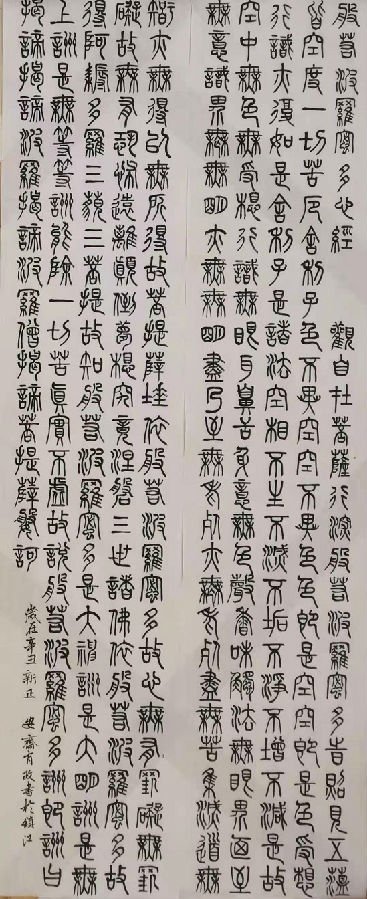 般若波羅蜜多心經 觀自在菩薩行深般若波羅蜜多時照見五蘊
皆空度一切苦厄舍利子色不異空空不異色色即是空空即是色受想
行識亦復如是舍利子是諸法空相不生不滅不垢不淨不增不減是故
空中無色無受想行識無眼耳鼻舌身意無色聲香味觸法無眼界乃至
無意識界無無明亦無無明盡乃至無老死亦無老死盡無苦集滅道無
智亦無得以無所得故菩提薩埵依般若波羅蜜多故心無罣礙無罣
礙故無有恐怖遠離顛倒夢想究竟涅槃三世諸佛依般若波羅蜜多故
得阿耨多羅三藐三菩提故知般若波羅蜜多是大神咒是大明咒是無
上咒是無等等咒能除一切苦真實不虛故說般若波羅蜜多咒即說咒曰
揭諦揭諦波羅揭諦波羅僧揭諦菩提薩婆訶
歲在辛丑新正 齋有政書於鎮江